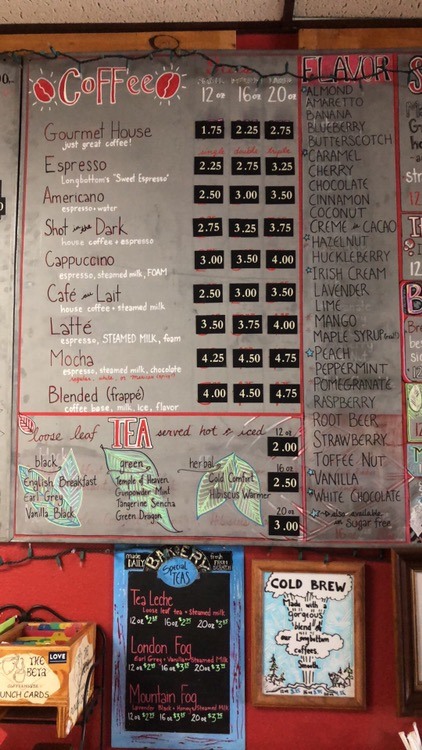 CoFFee
12 oz 16 oz 20 oz
Gourmet House 1.75 2.25 2.75
just great coffee!
single double triple
Espresso 2.25 2.75 3.25
Longbottom's "Sweet Espresso"
Americano 2.50 3.00 3.50
espresso + water
Shot in the Dark 2.75 3.25 3.75
house coffee + espresso
Cappuccino 3.00 3.50 4.00
espresso, steamed milk, FOAM
Café au Lait 2.50 3.00 3.50
house coffee + steamed milk
Latté 3.50 3.75 4.00
espresso, STEAMED MILK, foam
Mocha 4.25 4.50 4.75
espresso, steamed milk, chocolate
Blended (frappé) 4.00 4.50 4.75
coffee base, milk, ice, flavor
loose leaf TEA served hot & iced
12 oz
2.00
16 oz
2.50
20 oz
3.00
black
English Breakfast
Earl Grey
Vanilla Black
green
Temple of Heaven
Gunpowder Mint
Tangerine Sencha
Green Dragon
herbal
Cold Comfort
Hibiscus Warmer
FLAVOR
ALMOND
AMARETTO
BANANA
BLUEBERRY
BUTTERSCOTCH
CARAMEL
CHERRY
CHOCOLATE
CINNAMON
COCONUT
CRÈME de CACAO
HAZELNUT
HUCKLEBERRY
IRISH CREAM
LAVENDER
LIME
MANGO
MAPLE SYRUP
PEACH
PEPPERMINT
POMEGRANATE
RASPBERRY
ROOT BEER
STRAWBERRY
TOFFEE NUT
VANILLA
WHITE CHOCOLATE
also available
in Sugar free
made DAILY BAKERY fresh FROM SCRATCH
Special TEAS
Tea Leche
Loose leaf tea + steamed milk
12 oz 16 oz 20 oz
London Fog
Earl Grey + Vanilla + Steamed Milk
12 oz 16 oz 20 oz
Mountain Fog
Lavender Black + Honey + Steamed Milk
12 oz 16 oz 20 oz
COLD BREW
Made with a
gorgeous
blend of
our Longbottom
coffees.
THE
BETA
LOVE
PUNCH CARDS